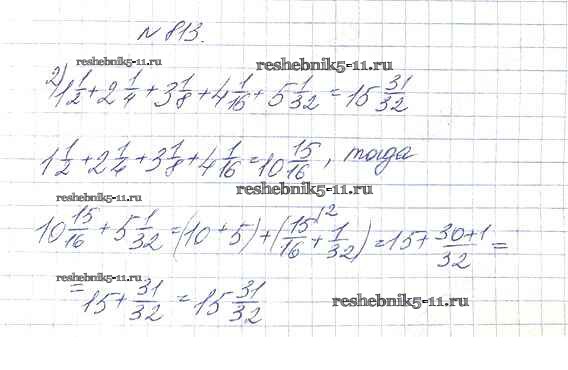 № 813.
reshebnik5-11.ru reshebnik5-11.ru
2) 1 1/2 + 2 1/4 + 3 1/8 + 4 1/16 + 5 1/32 = 15 31/32
1 1/2 + 2 1/4 + 3 1/8 + 4 1/16 = 10 15/16, тогда
reshebnik5-11.ru reshebnik5-11.ru
10 15/16 + 5 1/32 = (10 + 5) + (15/16 \2 + 1/32) = 15 + 30+1/32 =
reshebnik5-11.ru
= 15 + 31/32 = 15 31/32
reshebnik5-11.ru